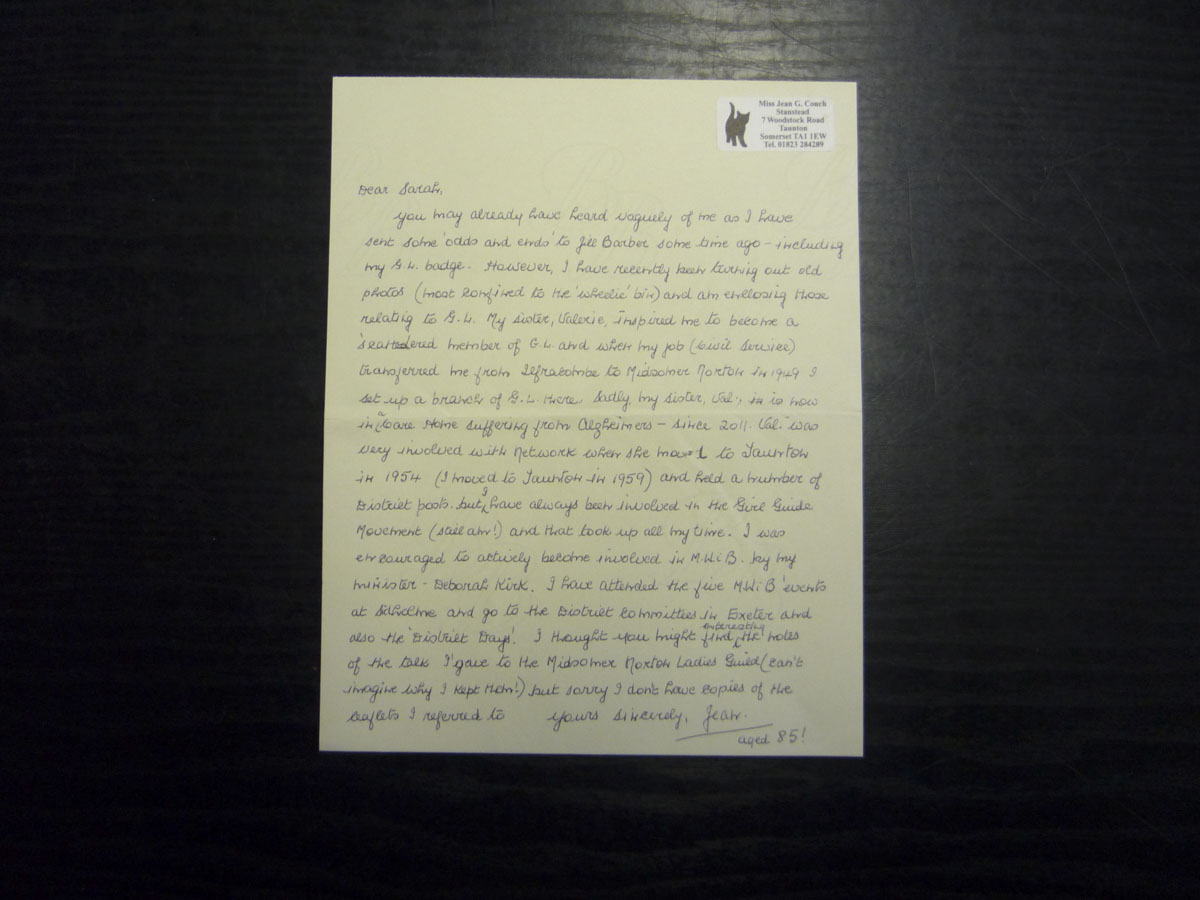 Miss Jean G. Couch
Stanstead
7 Woodstock Road
Taunton
Somerset TA1 1EW
Tel. 01823 284289
Dear Sarah,
you may already have heard vaguely of me as I have
sent some 'odds and ends' to Jill Barber some time ago - including
my G.L. badge. However, I have recently been turning out old
photos (most confined to the 'wheelie' bin) and am enclosing those
relating to G.L. My sister, Valerie, inspired me to become a
'scattered member of G.L. and when my job (Civil Service)
transferred me from Ilfracombe to Midsomer Norton in 1949 I
set up a branch of G.L. there. Sadly, my sister, Val., is now
in a Care Home suffering from Alzheimers - since 2011. Val. was
very involved with Network when she moved to Taunton
in 1954 (I moved to Taunton in 1959) and held a number of
District posts. but I have always been involved in the Girl Guide
Movement (still am!) and that took up all my time. I was
encouraged to actively become involved in M.W.i B. by my
minister - Deborah Kirk. I have attended the five MWiB 'events
at Sidholme and go to the District Committees in Exeter and
also the 'District Days'. I thought you might find interesting the notes
of the talk I gave to the Midsomer Norton Ladies Guild (can't
imagine why I kept them!) but sorry I don't have copies of the
leaflets I referred to yours sincerely, Jean.
aged 85!